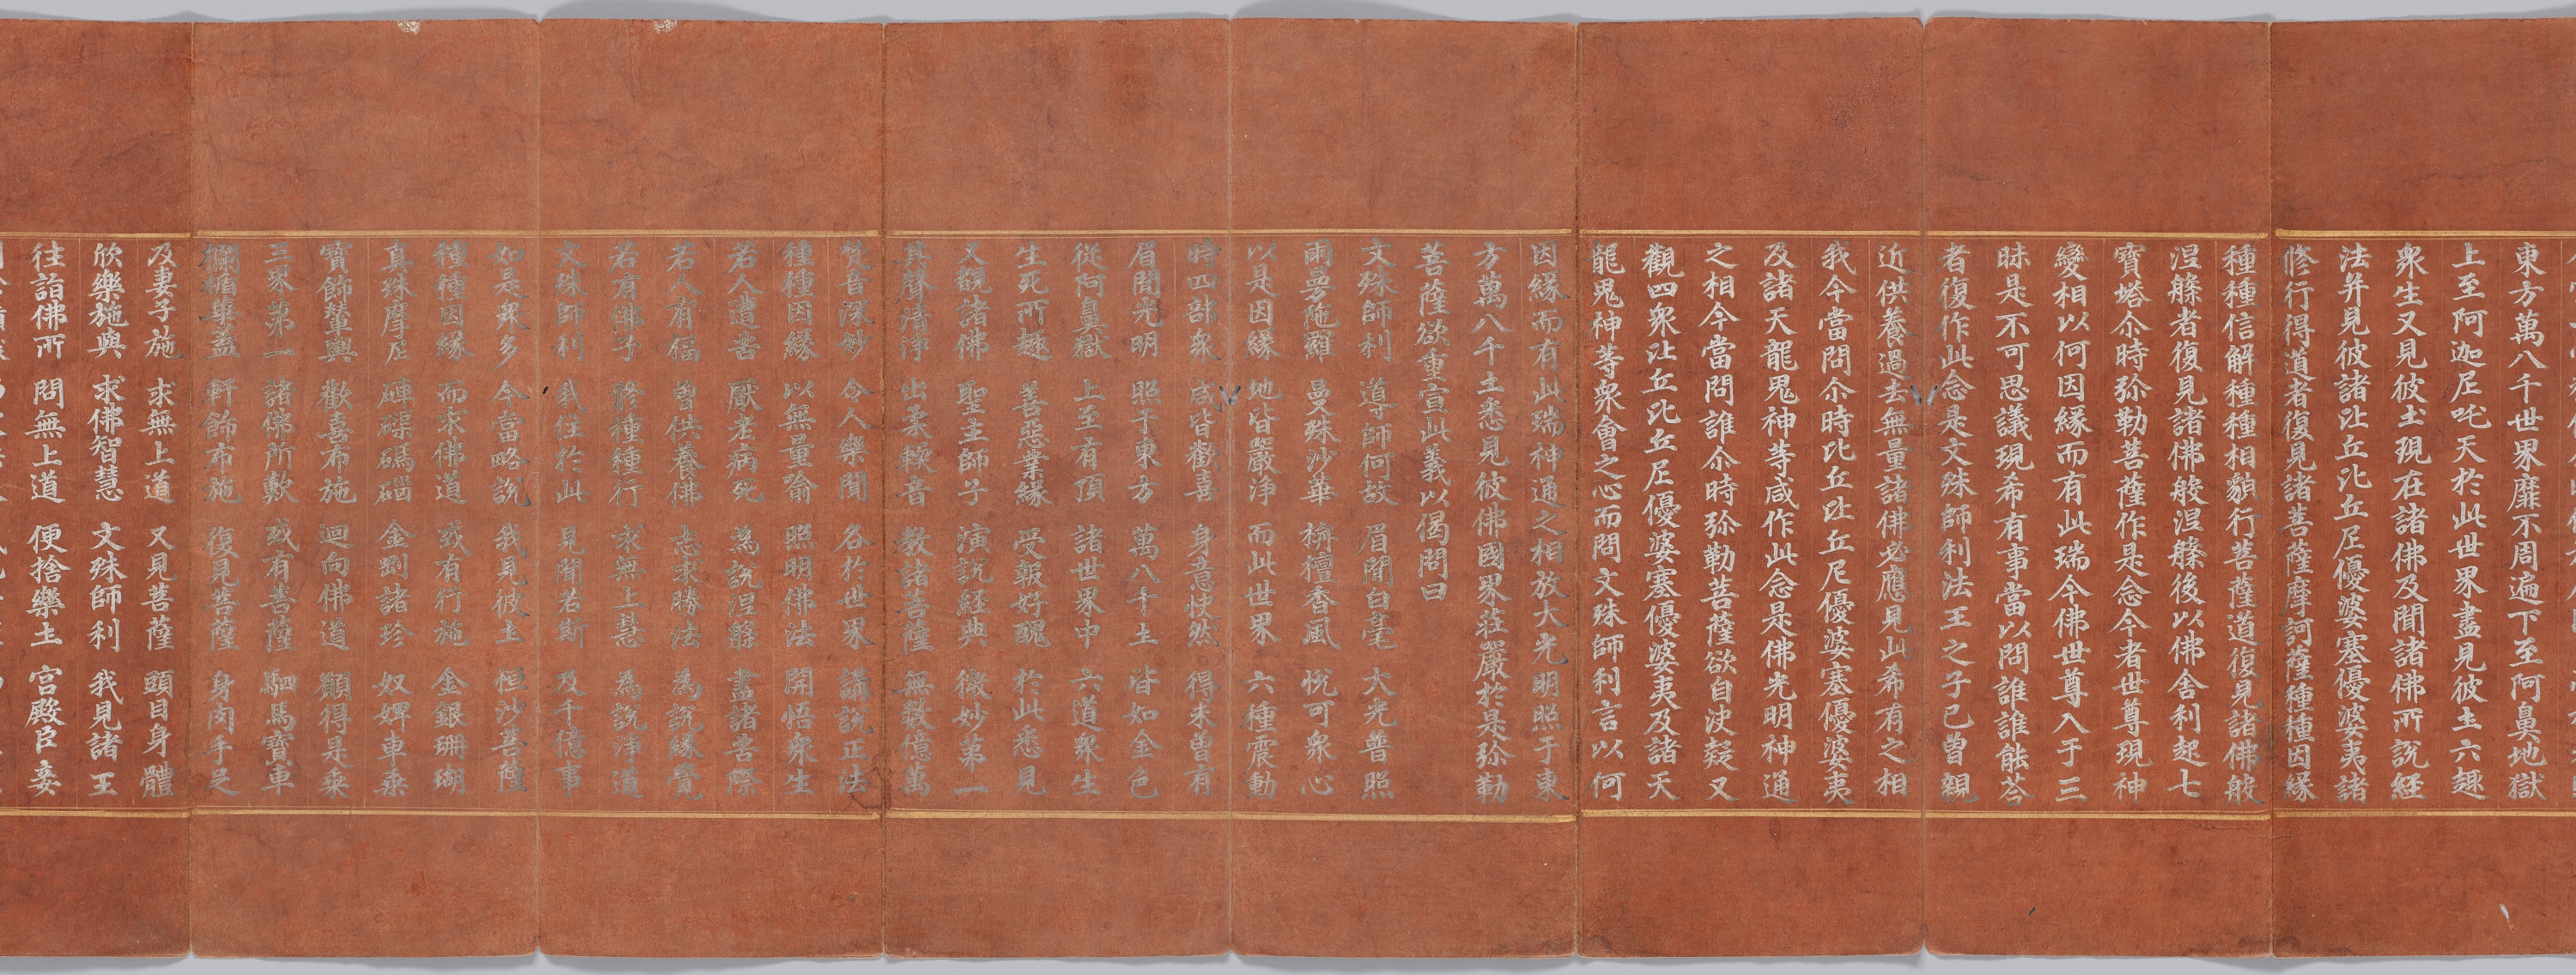 東方萬八千世界靡不周遍下至阿鼻地獄
上至阿迦尼吒天於此世界盡見彼土六趣
衆生又見彼土現在諸佛及聞諸佛所說経
法并見彼諸比丘比丘尼優婆塞優婆夷諸
修行得道者復見諸菩薩摩訶薩種種因緣
種種信解種種相貌行菩薩道復見諸佛般
涅槃者復見諸佛般涅槃後以佛舍利起七
寶塔尒時弥勒菩薩作是念今者世尊現神
變相以何因緣而有此瑞今佛世尊入于三
昧是不可思議現希有事當以問誰誰能荅
者復作此念是文殊師利法王之子已曾親
近供養過去無量諸佛必應見此希有之相
我今當問尒時比丘比丘尼優婆塞優婆夷
及諸天龍鬼神等咸作此念是佛光明神通
之相今當問誰尒時弥勒菩薩欲自決疑又
觀四衆比丘比丘尼優婆塞優婆夷及諸天
龍鬼神等衆會之心而問文殊師利言以何
因緣而有此瑞神通之相放大光明照于東
方萬八千土悉見彼佛國界莊嚴於是弥勒
菩薩欲重宣此義以偈問曰
文殊師利 導師何故 眉間白毫 大光普照
雨曼陁羅 曼殊沙華 栴檀香風 悅可衆心
以是因緣 地皆嚴淨 而此世界 六種震動
時四部衆 咸皆歡喜 身意快然 得未曾有
眉間光明 照于東方 萬八千土 皆如金色
從阿鼻獄 上至有頂 諸世界中 六道衆生
生死所趣 善惡業緣 受報好醜 於此悉見
又覩諸佛 聖主師子 演說経典 微妙第一
其聲清淨 出柔軟音 教諸菩薩 無數億萬
梵音深妙 令人樂聞 各於世界 講說正法
種種因緣 以無量喻 照明佛法 開悟衆生
若人遭苦 厭老病死 為說涅槃 盡諸苦際
若人有福 曾供養佛 志求勝法 為說緣覺
若有佛子 修種種行 求無上慧 為說淨道
文殊師利 我住於此 見聞若斯 及千億事
如是衆多 今當略說 我見彼土 恒沙菩薩
種種因緣 而求佛道 或有行施 金銀珊瑚
真珠摩尼 硨磲碼碯 金剛諸珍 奴婢車乘
寶飾輦輿 歡喜布施 迴向佛道 願得是乘
三界第一 諸佛所歎 或有菩薩 駟馬寶車
欄楯華蓋 軒飾布施 復見菩薩 身肉手足
及妻子施 求無上道 又見菩薩 頭目身體
欣樂施與 求佛智慧 文殊師利 我見諸王
往詣佛所 問無上道 便捨樂土 宮殿臣妾